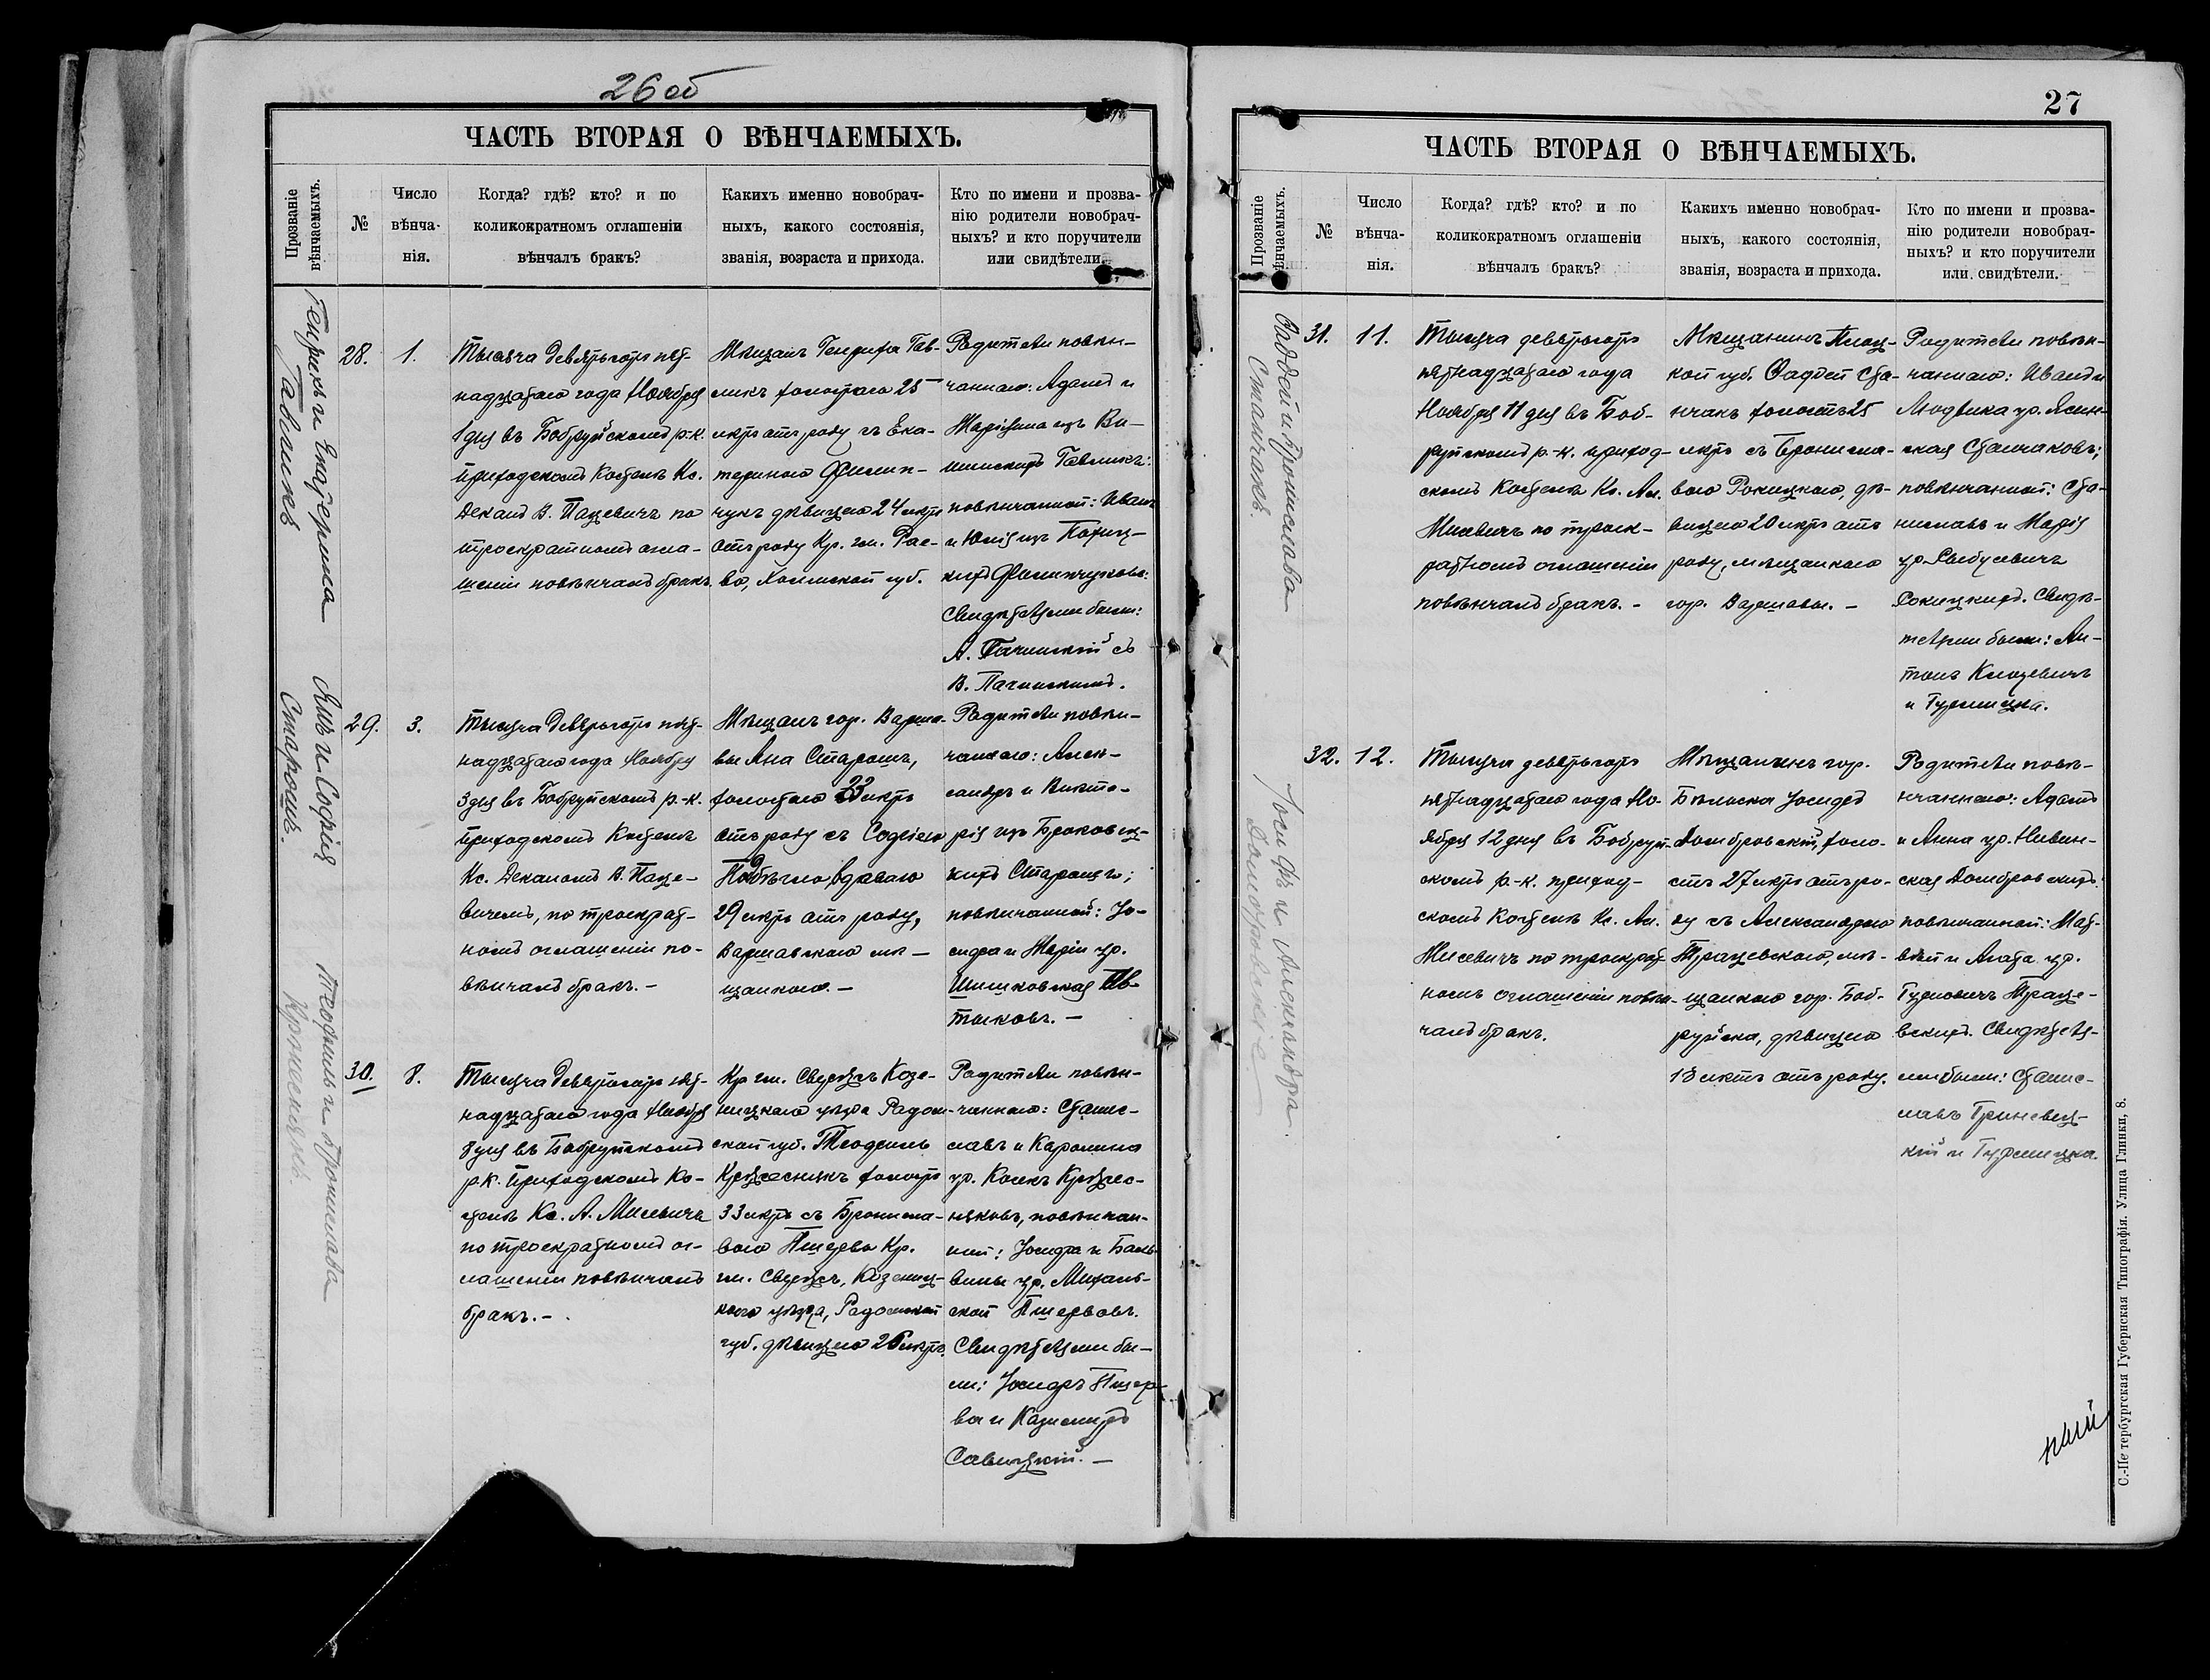 26 об
ЧАСТЬ ВТОРАЯ О ВѢНЧАЕМЫХЪ.
Прозваніе
вѣнчаемыхъ.
№
Число
вѣнча-
нія.
Когда? гдѣ? кто? и по
коликократномъ оглашеніи
вѣнчалъ бракъ?
Какихъ именно новобрач-
ныхъ, какого состоянія,
званія, возраста и прихода.
Кто по имени и прозва-
нію родители новобрач-
ныхъ? и кто поручители
или свидѣтели.
Генрикъ и Екатерина
Гавликъ
28.
1.
Тысяча девятьсотъ пят-
надцатаго года Ноября
1 дня въ Бобруйскомъ р.-к.
приходскомъ Костелѣ Кс.
Деканъ В. Пацевичъ по
троекратномъ огла-
шеніи повѣнчалъ бракъ.
Мѣщанъ Генриха Гав-
ликъ холостого 25
лѣтъ отъ роду съ Ека-
териною Филип-
чукъ дѣвицею 24 лѣтъ
отъ роду Кр. гм. Рае-
во, Холмской губ.
Родители повѣн-
чаннаго: Адамъ и
Маріанна изъ Ви-
Гавликъ:
повѣнчанной: Иванъ
и Юлія изъ
Филипчуковъ:
Свидѣтелями были:
А. Пачинскій съ
В. Пачинскимъ.
Янъ и Софія
Старошъ.
29.
3.
Тысяча девятьсотъ пят-
надцатаго года Ноября
3 дня въ Бобруйскомъ р.-к.
приходскомъ Костелѣ
Кс. Деканомъ В. Паце-
вичемъ, по троекрат-
номъ оглашеніи по-
вѣнчалъ бракъ. -
Мѣщанъ гор. Варша-
вы Яна Старошъ,
холостого 33 лѣтъ
отъ роду съ Софіею
вдовою
29 лѣтъ отъ роду,
Варшавскою мѣ-
щанкою. -
Родители повѣн-
чаннаго: Алек-
сандръ и Викто-
рія изъ Броковец-
кихъ Старошъ;
повѣнчанной: Іо-
сифа и Маріи ур.
Шишковская
Теофиль и Бронислава
30.
8.
Тысяча девятьсотъ пят-
надцатаго года Ноября
8 дня въ Бобруйскомъ
р.к. приходскомъ Ко-
стелѣ Кс. А. Мисевичъ
по троекратномъ ог-
лашеніи повѣнчалъ
бракъ. -
Кр гм. Свержъ Козе-
ницкаго уѣзда Радом-
ской губ. Теофиль
холостъ
33 лѣтъ съ Брониcла-
вою Пшерва Кр.
гм. Свержъ, Козениц-
каго уѣзда, Радомской
губ. дѣвицею 26 лѣтъ.
Родители повѣн-
чаннаго: Станис-
лавъ и Каролина
ур.
повѣнчан-
ной: Іосифа и Баль-
вины ур. Михаль-
ской Пшервовъ.
Свидѣтелями бы-
ли: Іосифъ Пшер-
ва и Казимиръ
Савицкій. -
27
ЧАСТЬ ВТОРАЯ О ВѢНЧАЕМЫХЪ.
Прозваніе
вѣнчаемыхъ.
№
Число
вѣнча-
нія.
Когда? гдѣ? кто? и по
коликократномъ оглашеніи
вѣнчалъ бракъ?
Какихъ именно новобрач-
ныхъ, какого состоянія,
званія, возраста и прихода.
Кто по имени и прозва-
нію родители новобрач-
ныхъ? и кто поручители
или свидѣтели.
Фаддей и Бронислава
Станчакъ.
31.
11.
Тысяча девятьсотъ
пятнадцатаго года
Ноября 11 дня въ Боб-
руйскомъ р.-к. приход-
скомъ Костелѣ Кс. Ал.
Мисевичъ по троек-
ратномъ оглашеніи
повѣнчалъ бракъ. -
Мѣщанинъ Плоц-
кой губ. Фадей Ста-
нчакъ холостъ 25
лѣтъ съ Бронисла-
вою Рокицкою, дѣ-
вицею 20 лѣтъ отъ
роду, мѣщанкою
гор. Варшавы. -
Родители повѣн-
чаннаго: Иванъ и
Людвика ур. Ясин-
ская Станчаковъ;
повѣнчанной: Ста-
ниславъ и Марія
ур.
Рокицкихъ. Свидѣ-
телями были: Ан-
тонъ
и Гурницка.
Іосифъ и Александра
Домбровскіе
32.
12.
Тысяча девятьсотъ
пятнадцатаго года Но-
ября 12 дня въ Бобруй-
скомъ р.-к. приход-
скомъ Костелѣ Кс. Ал.
Мисевичъ по троекрат-
номъ оглашеніи повѣн-
чалъ бракъ.
Мѣщанинъ гор.
Бѣльска Іосифъ
Домбровскій, холо-
стъ 27 лѣтъ отъ ро-
ду съ Александрою
Трацевскою, мѣ-
щанкою гор. Боб-
руйска, дѣвицею
18 лѣтъ отъ роду.
Родители повѣ-
нчаннаго: Адамъ
и Анна ур. Нивин-
ская Домбровскихъ
повѣнчанной: Мат-
вѣй и Агата ур.
Гуриновичъ Траце-
вскихъ. Свидѣтеля-
ми были: Станис-
лавъ Гриневец-
кій и Гурницка.
С.-Петербургская Губернская Типографія. Улица Глинки, 8.